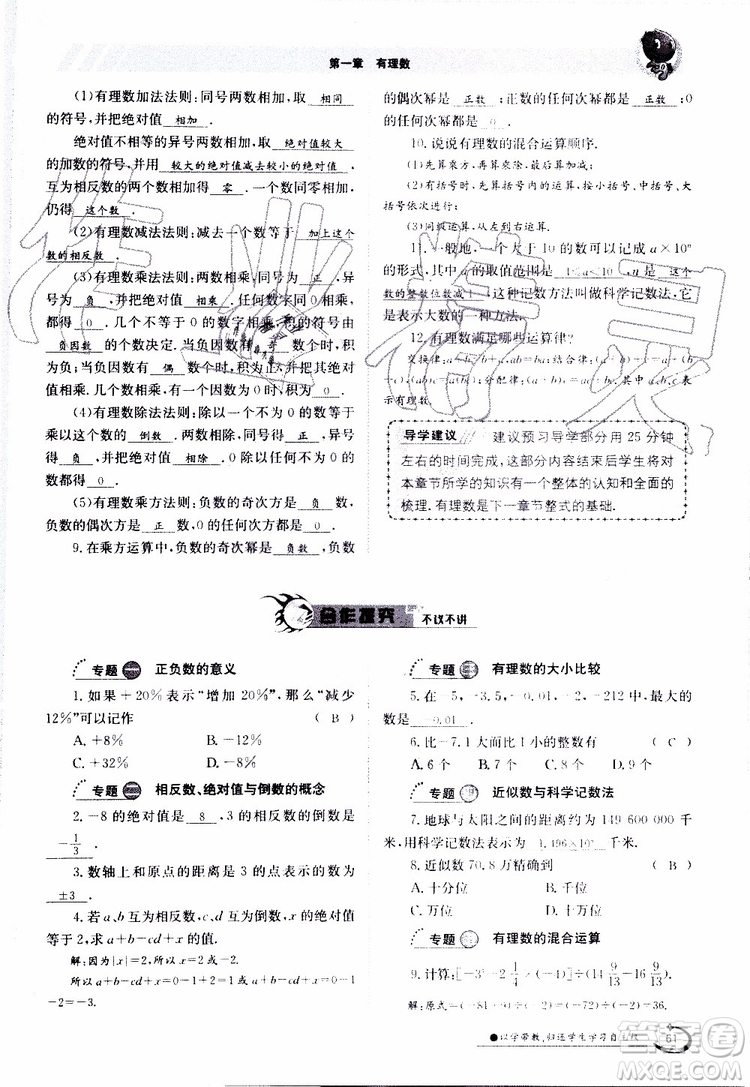 第一章　有理数
(1)有理数加法法则:同号两数相加,取 相同
的符号,并把绝对值 相加 .
绝对值不相等的异号两数相加,取 绝对值较大
的加数的符号,并用 较大的绝对值减去较小的绝对值 .
互为相反数的两个数相加得 零 .一个数同零相加,
仍得 这个数 .
(2)有理数减法法则:减去一个数,等于 加上这个
数的相反数 .
(3)有理数乘法法则:两数相乘,同号为 正 ,异号
为 负 ,并把绝对值 相乘 .任何数字同0相乘,
都得 0 .几个不为0的数字相乘,积的符号由
负因数 的个数决定.当负因数有 奇 数个时,积为
负 ;当负因数有 偶 数个时,积为 正 ,并把其绝对值相乘.
(4)有理数除法法则:除以一个不为0的数等于
乘以这个数的 倒数 .两数相除,同号得 正 ,异号
得 负 ,并把绝对值 相除 .0除以任何不为0的数
都得 0 .
(5)有理数乘方法则:负数的奇次方是 负数 ,
负数的偶次方是 正数 ,0的任何次方都是 0 .
9.在乘方运算中,负数的奇次幂是 负数 ,负数
的偶次幂是 正数 ;正数的任何次幂都是 正数 ;0
的任何次幂都是 0 .
10.说说有理数的混合运算顺序.
(1)先算乘方,再算乘除,最后算加减;
(2)有括号时,先算括号里面的运算,按小括号、中括号、大括
号依次进行;
(3)同级运算,从左到右进行.
11.一般地,一个大于10的数可以记成a×10ⁿ
的形式,其中a的取值范围是 1≤a<10 ,n是 这个
数的整数位数减1 ,这种记数方法叫做科学记数法,它
是表示大数的一种方法.
12.有理数满足哪些运算律?
导学建议　建议预习导学部分用25分钟
左右的时间完成,这部分内容结束后学生将对
本章节所学的知识有一个整体的认知和全面的
梳理.有理数是下一章节整式的基础.
合作探究　不议不讲
专题一　正负数的意义
1.如果+20%表示“增加20%”,那么“减少
12%”可以记作 ( B )
A.+8%　B.-12%
C.+32%　D.-8%
专题二　相反数、绝对值与倒数的概念
2.-8的绝对值是 8 ,3的相反数的倒数是
-1/3 .
3.数轴上和原点的距离是3的点表示的数是
±3 .
4.若a、b互为相反数,c、d互为倒数,x的绝对值
等于2,求a+b-cd+x的值.
解:因为|x|=2,所以x=±2.
所以a+b-cd+x=0-1+2=1或a+b-cd+x=0-1
-2=-3.
专题三　有理数的大小比较
5.在-5,-3.5,-0.01,-2,-212中,最大的
数是 -0.01 .
6.比-7.1大,而比1小的整数有 ( C )
A.6个　B.7个　C.8个　D.9个
专题四　近似数与科学记数法
7.地球与太阳之间的距离约为149 600 000千
米,用科学记数法表示为 1.496×10⁸ 千米.
8.近似数70.8万精确到 ( B )
A.十分位　B.千位
C.万位　D.百位
专题五　有理数的混合运算
解:原式=(-81-9/4)÷(-9/4)=36.
以学带教,归还学生学习自主权
61